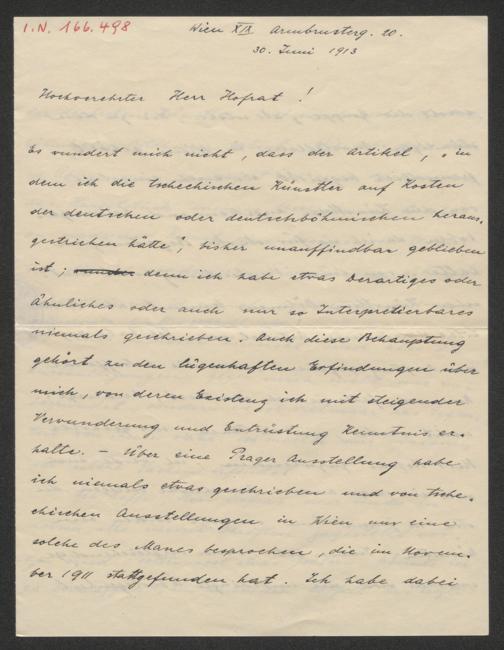 I.N. 166.498
Wien XIX Armbrusterg. 20.
30. Juni 1913
Hochverehrter Herr Hofrat!
Es wundert mich nicht, dass der Artikel, „in
dem ich die tschechischen Künstler auf Kosten
der deutschen oder deutschböhmischen heraus-
gestrichen hätte“, bisher unauffindbar geblieben
ist; denn ich habe etwas Derartiges oder
Ähnliches oder auch nur so Interpretierbares
niemals geschrieben. Auch diese Behauptung
gehört zu den lügenhaften Erfindungen über
mich, von deren Existenz ich mit steigender
Verwunderung und Entrüstung Kenntnis er-
halte. – Über eine Prager Ausstellung habe
ich niemals etwas geschrieben und von tsche-
chischen Ausstellungen in Wien nur eine
solche des Manes besprochen, die im Novem-
ber 1911 stattgefunden hat. Ich habe dabei